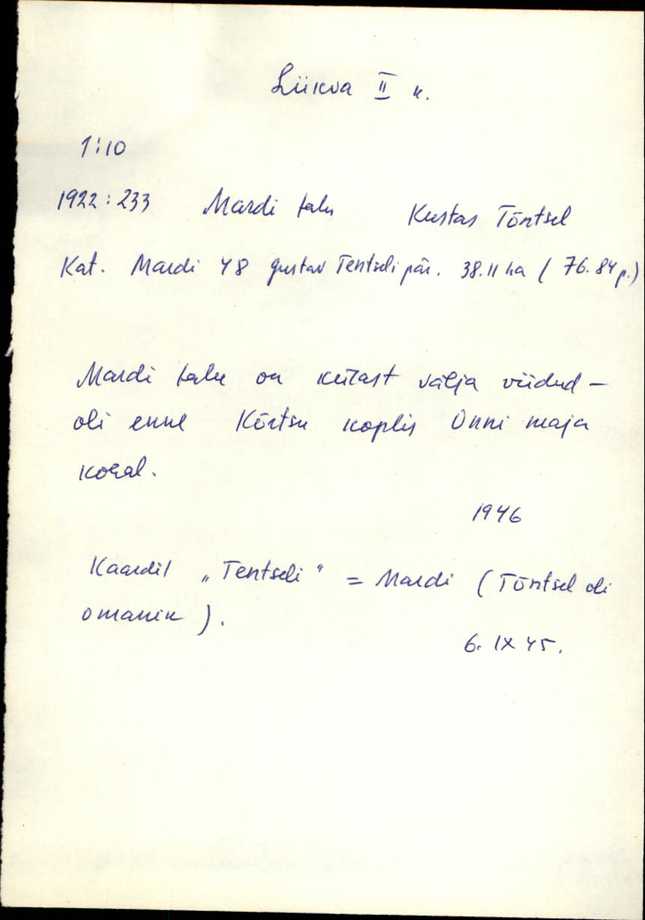 Liikva II k.
1:10
1922:233 Mardi talu Kustas Tõntsel
Kat. Mardi 48 Gustav Tentseli pär. 38.11 ha (76.84 p.)
Mardi talu on külast välja viidud –
oli enne Kõrtsu koplis Unni maja
kohal.
1946
Kaardil „Tentseli" = Mardi (Tõntsel oli
omanik).
6. IX 45.